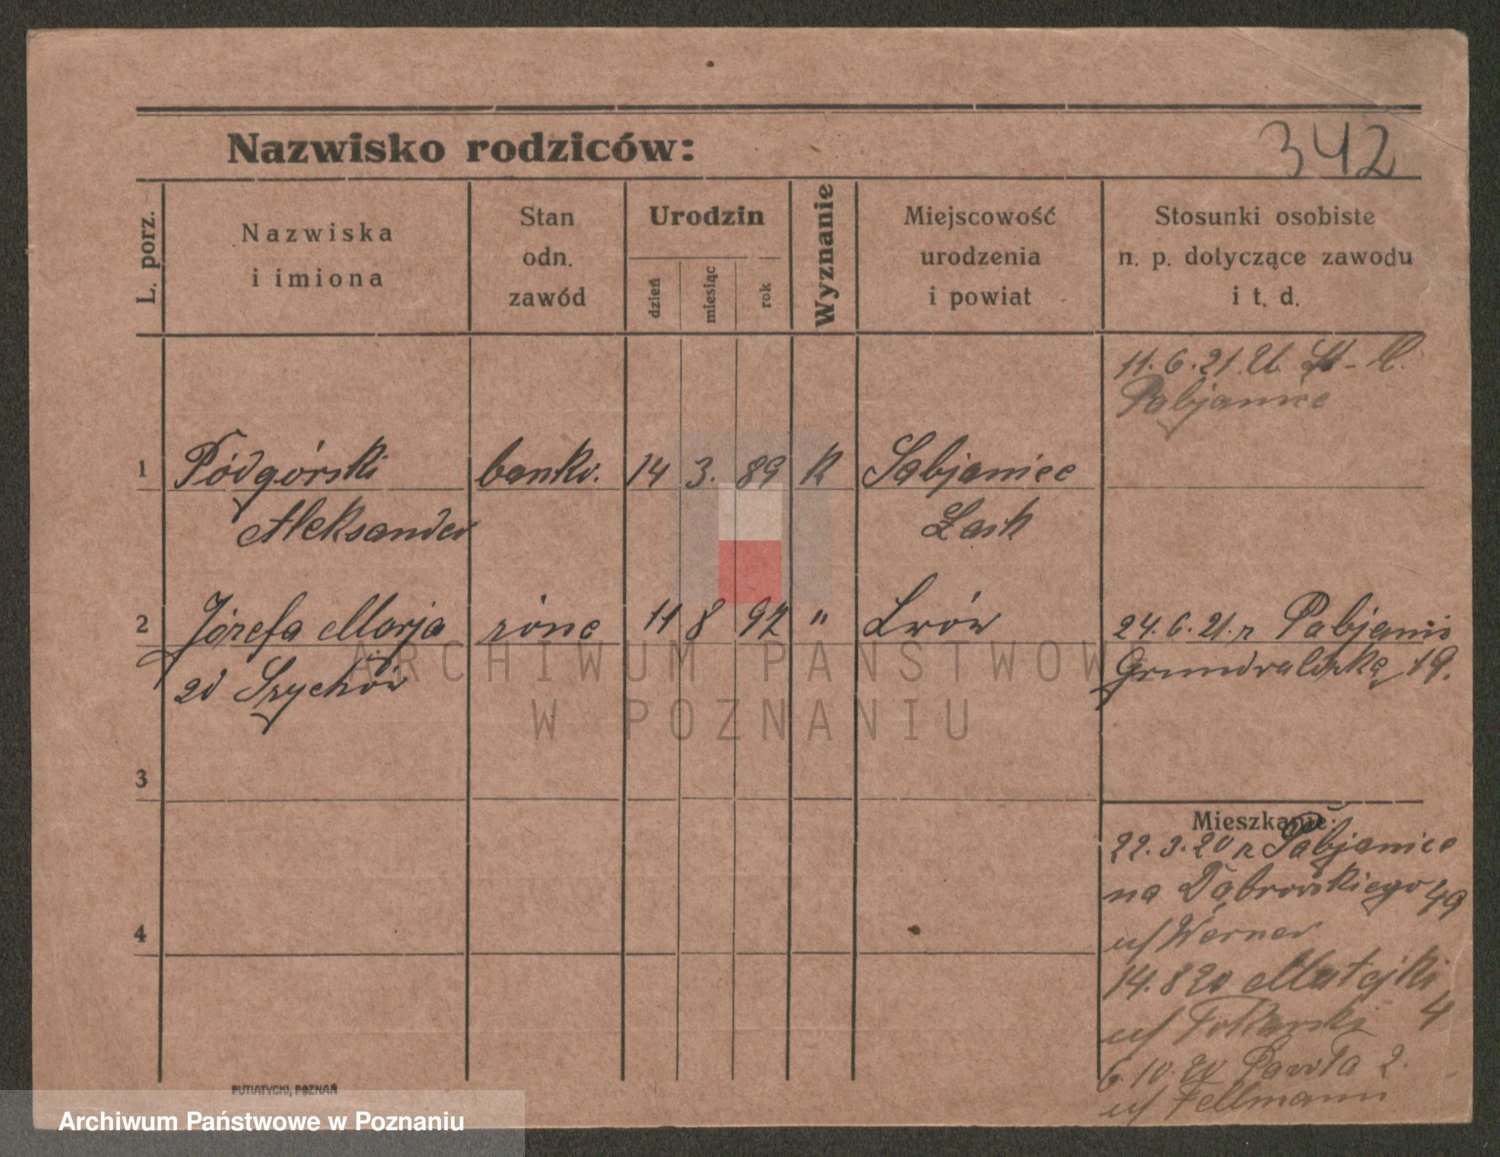 Nazwisko rodziców:
342
L. porz.
Nazwiska
i imiona
Stan
odn.
zawód
Urodzin
dzień
miesiąc
rok
Wyznanie
Miejscowość
urodzenia
i powiat
Stosunki osobiste
n. p. dotyczące zawodu
i t. d.
11.6.21.
Pabjanice
1 Pódgórski bankv. 14 3. 89 K Pabjanice
Aleksander Łask
2 Józefa Marja żóna 11 8 92 " Lwów 24.6.21. r Pabjanic
zd Szychów Grunwaldzka 19.
3
Mieszkanie:
22.3.20 r Pabjanice
na Dąbrowskiego 49
4
u/ Werner
14.8 20 Matejki
u/ Tokarski 4
6.10.20 Pawła 2.
u/ Fellmann
PUTIATYCKI, POZNAŃ
ARCHIWUM PAŃSTWOW
W POZNANIU
Archiwum Państwowe w Poznaniu